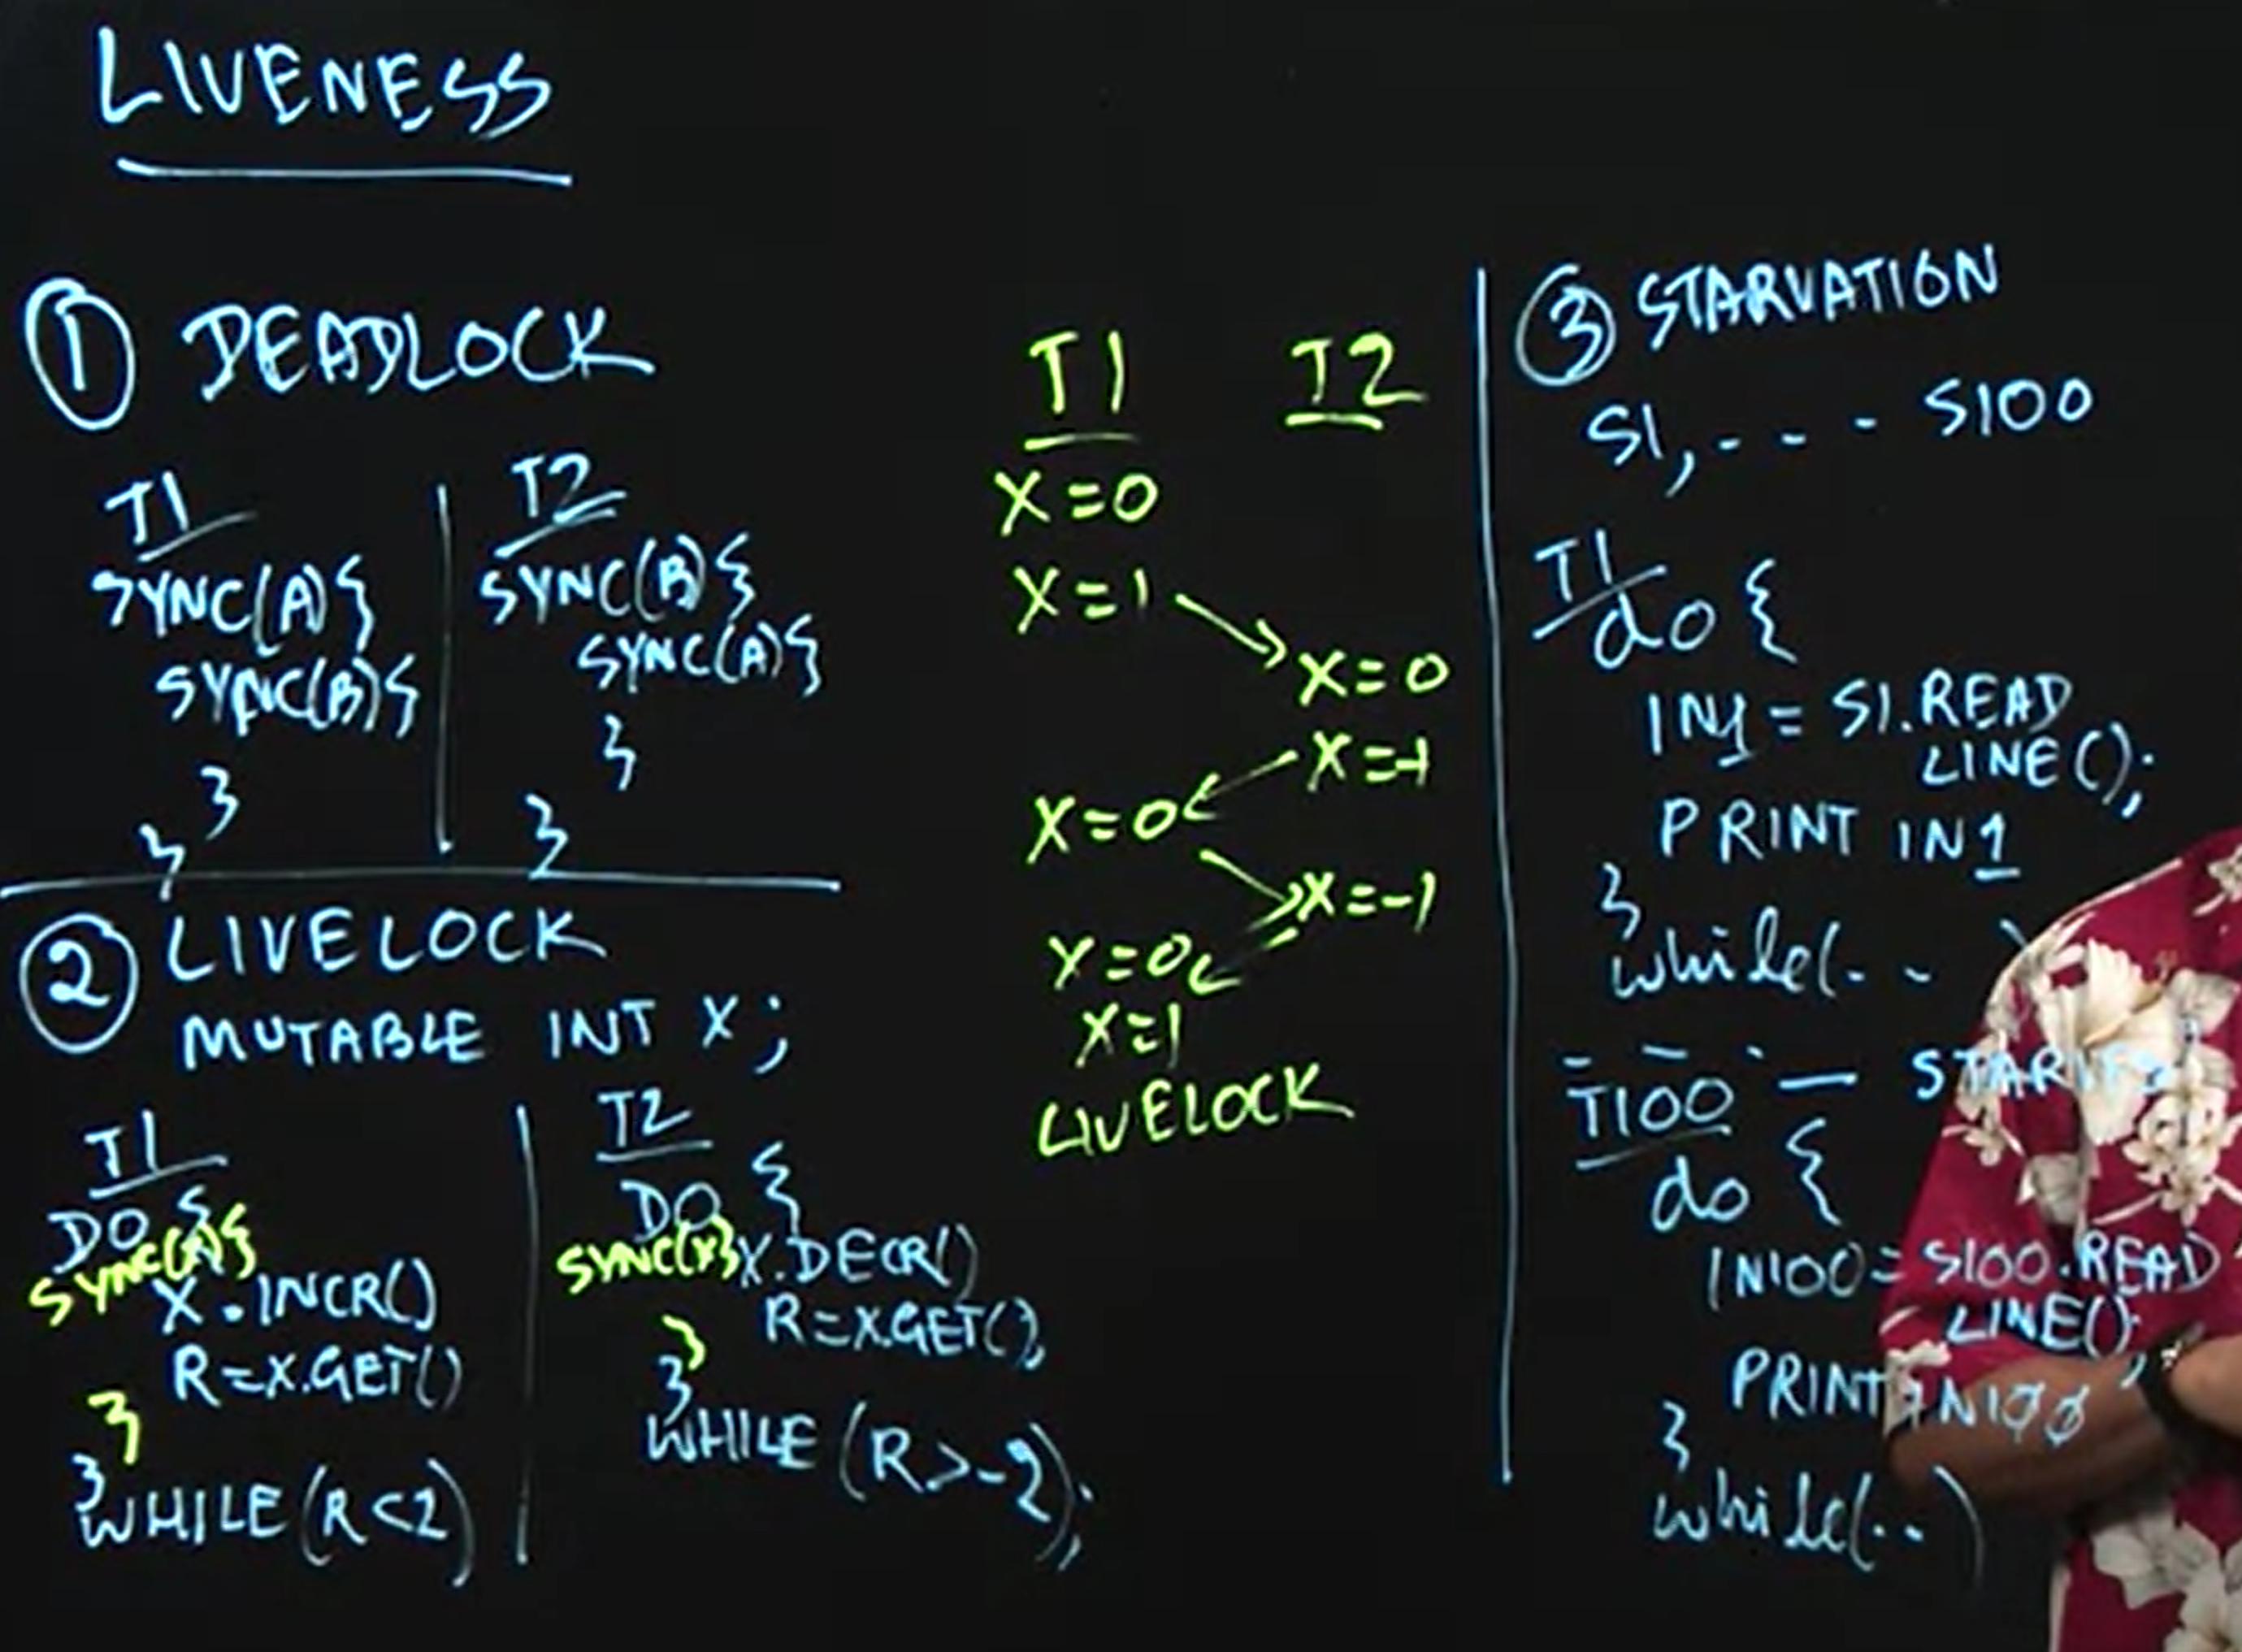 LIVENESS
① DEADLOCK
T1
SYNC(A){
SYNC(B){
}
}
T2
SYNC(B){
SYNC(A){
}
}
② LIVELOCK
MUTABLE INT X;
T1
DO {
SYNC(X){
X.INCR()
R=X.GET()
}
}
WHILE (R<2)
T2
DO {
SYNC(X){ X.DECR()
R=X.GET();
}
}
WHILE (R>-2);
T1 T2
X=0
X=1
X=0
X=-1
X=0
X=-1
X=0
X=1
LIVELOCK
③ STARVATION
S1, - - - S100
T1
do {
IN1 = S1.READ
LINE();
PRINT IN1
}
while(.. )
- - - 
T100 —
do {
IN100 = S100.READ
LINE();
PRINT IN100
}
while(..)